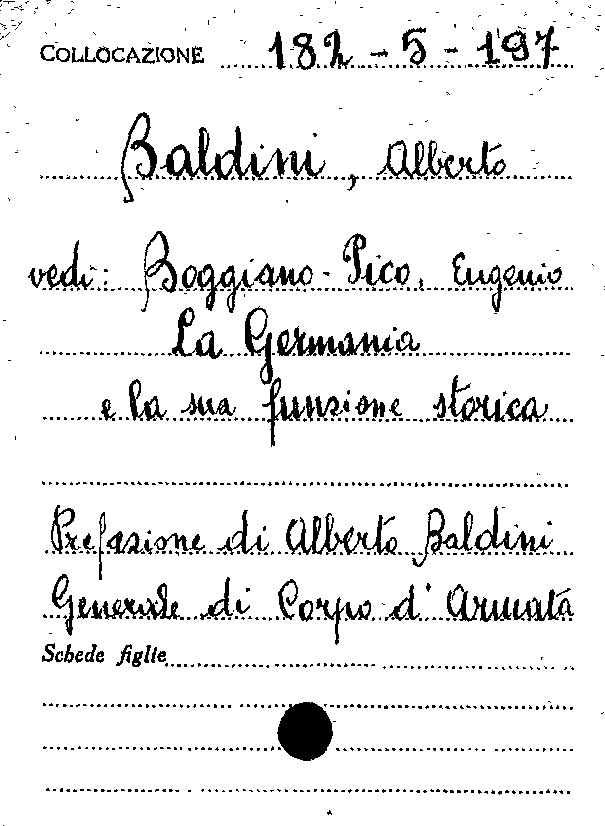 COLLOCAZIONE 182-5-197
Baldini, Alberto
vedi: Boggiano-Pico, Eugenio
La Germania
e la sua funzione storica
Prefazione di Alberto Baldini
Generale di Corpo d'Armata
Schede figlie